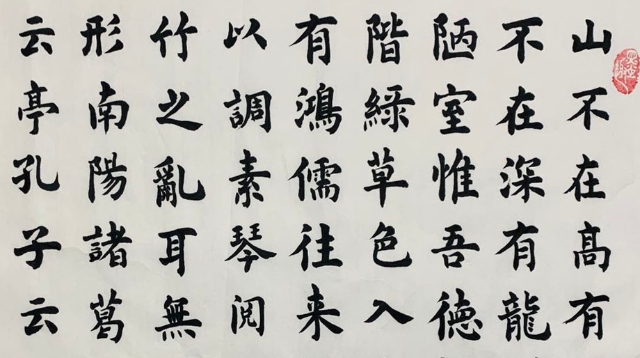 山不在高有
不在深有龍
陋室惟吾德
階綠草色入
有鴻儒往来
以調素琴阅
竹之亂耳無
形南陽諸葛
云亭孔子云